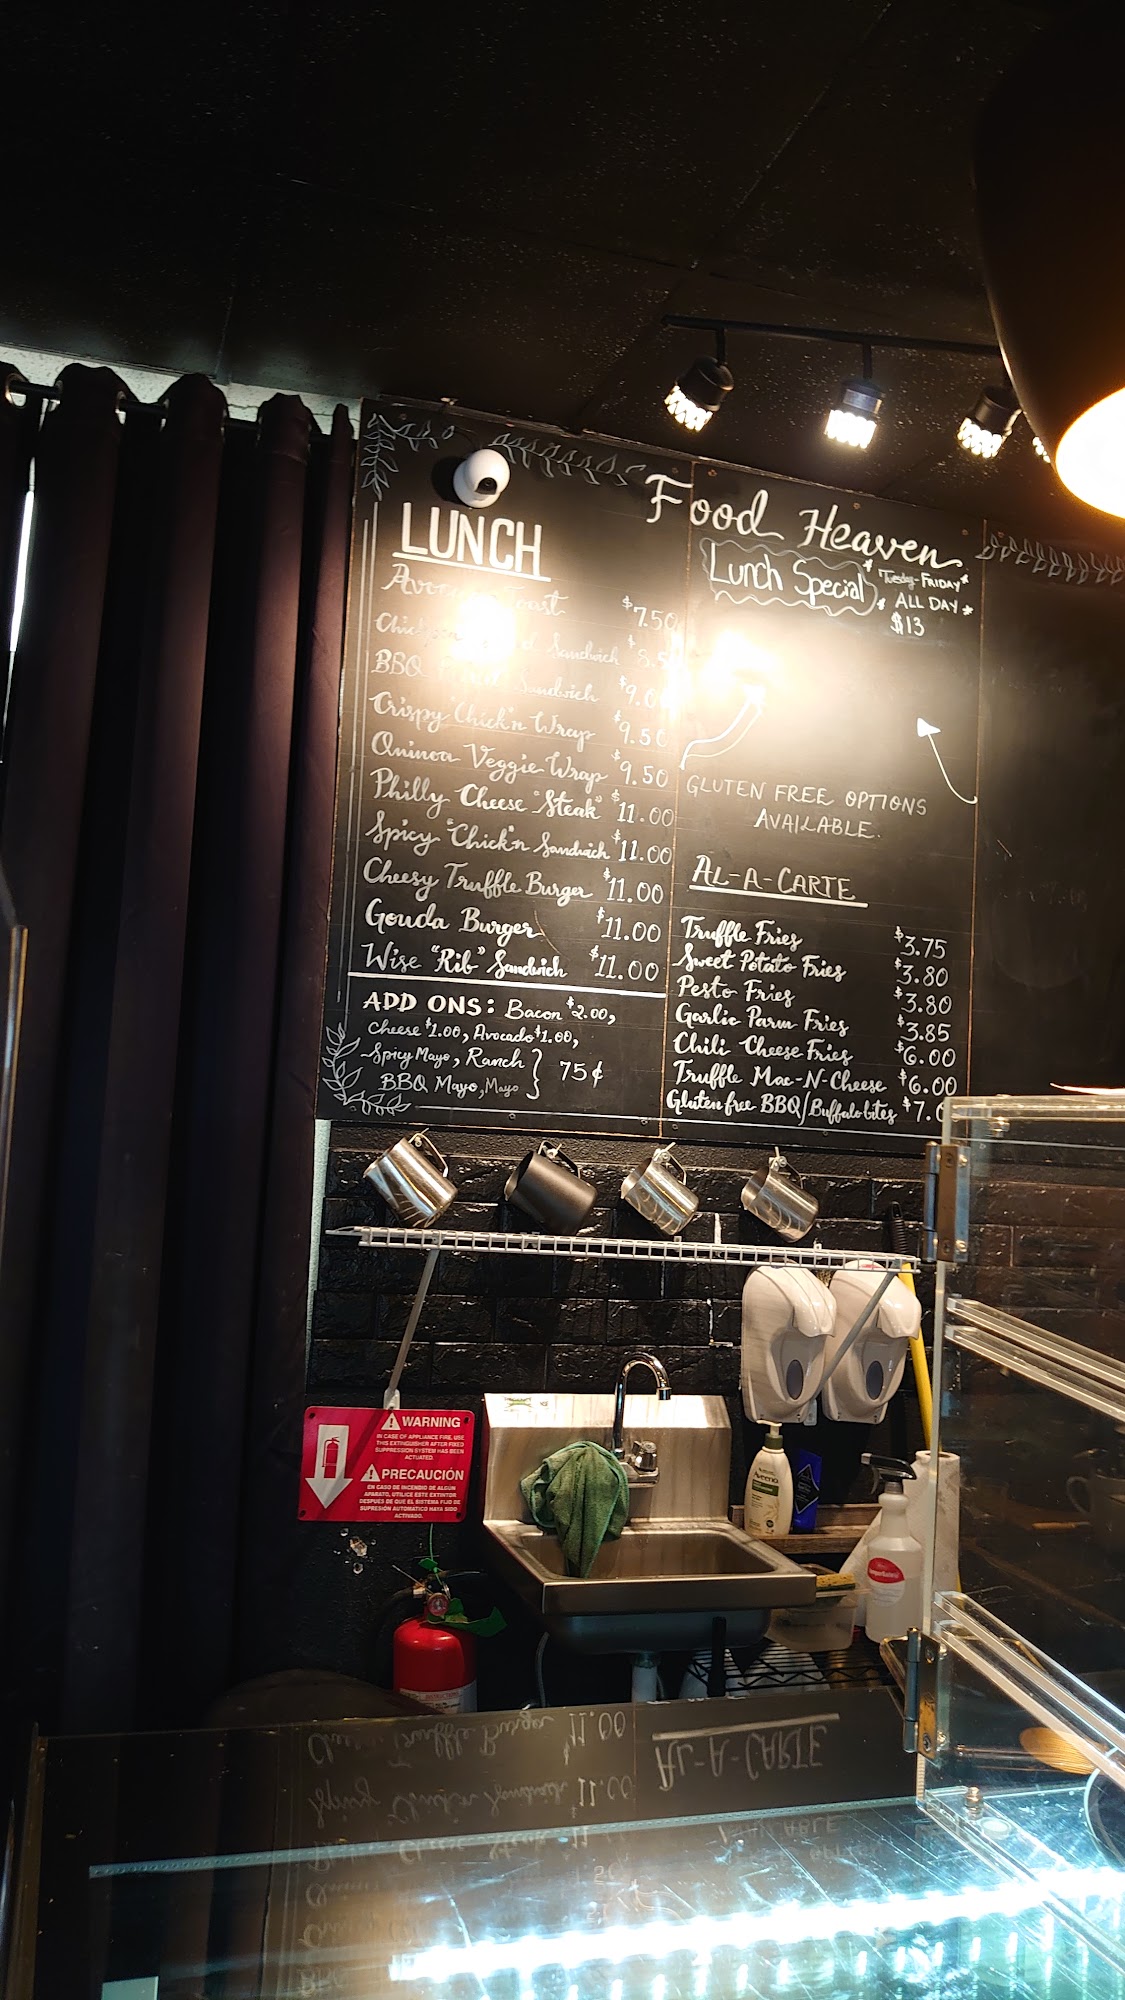 Food Heaven
LUNCH
Toast $7.50
Sandwich $8.5
BBQ Sandwich $9.00
Crispy "Chick'n Wrap $9.50
Quinoa Veggie Wrap $9.50
Philly Cheese "Steak" $11.00
Spicy "Chick'n Sandwich $11.00
Cheesy Truffle Burger $11.00
Gouda Burger $11.00
Wise "Rib" Sandwich $11.00
ADD ONS: Bacon $2.00,
Cheese $1.00, Avocado $1.00,
Spicy Mayo, Ranch
BBQ Mayo, Mayo } 75¢
Lunch Special
Tuesday-FRIDAY
ALL DAY
$13
GLUTEN FREE OPTIONS
AVAILABLE.
AL-A-CARTE
Truffle Fries $3.75
Sweet Potato Fries $3.80
Pesto Fries $3.80
Garlic Parm Fries $3.85
Chili Cheese Fries $6.00
Truffle Mac-N-Cheese $6.00
Gluten free BBQ/Buffalo bites $7.0
WARNING
IN CASE OF APPLIANCE FIRE, USE
THIS EXTINGUISHER AFTER FIXED
SUPPRESSION SYSTEM HAS BEEN
ACTUATED.
PRECAUCIÓN
EN CASO DE INCENDIO DE ALGÚN
APARATO, UTILICE ESTE EXTINTOR
DESPUES DE QUE EL SISTEMA FIJO DE
SUPRESIÓN AUTOMATICO HAYA SIDO
ACTIVADO.
Aveeno